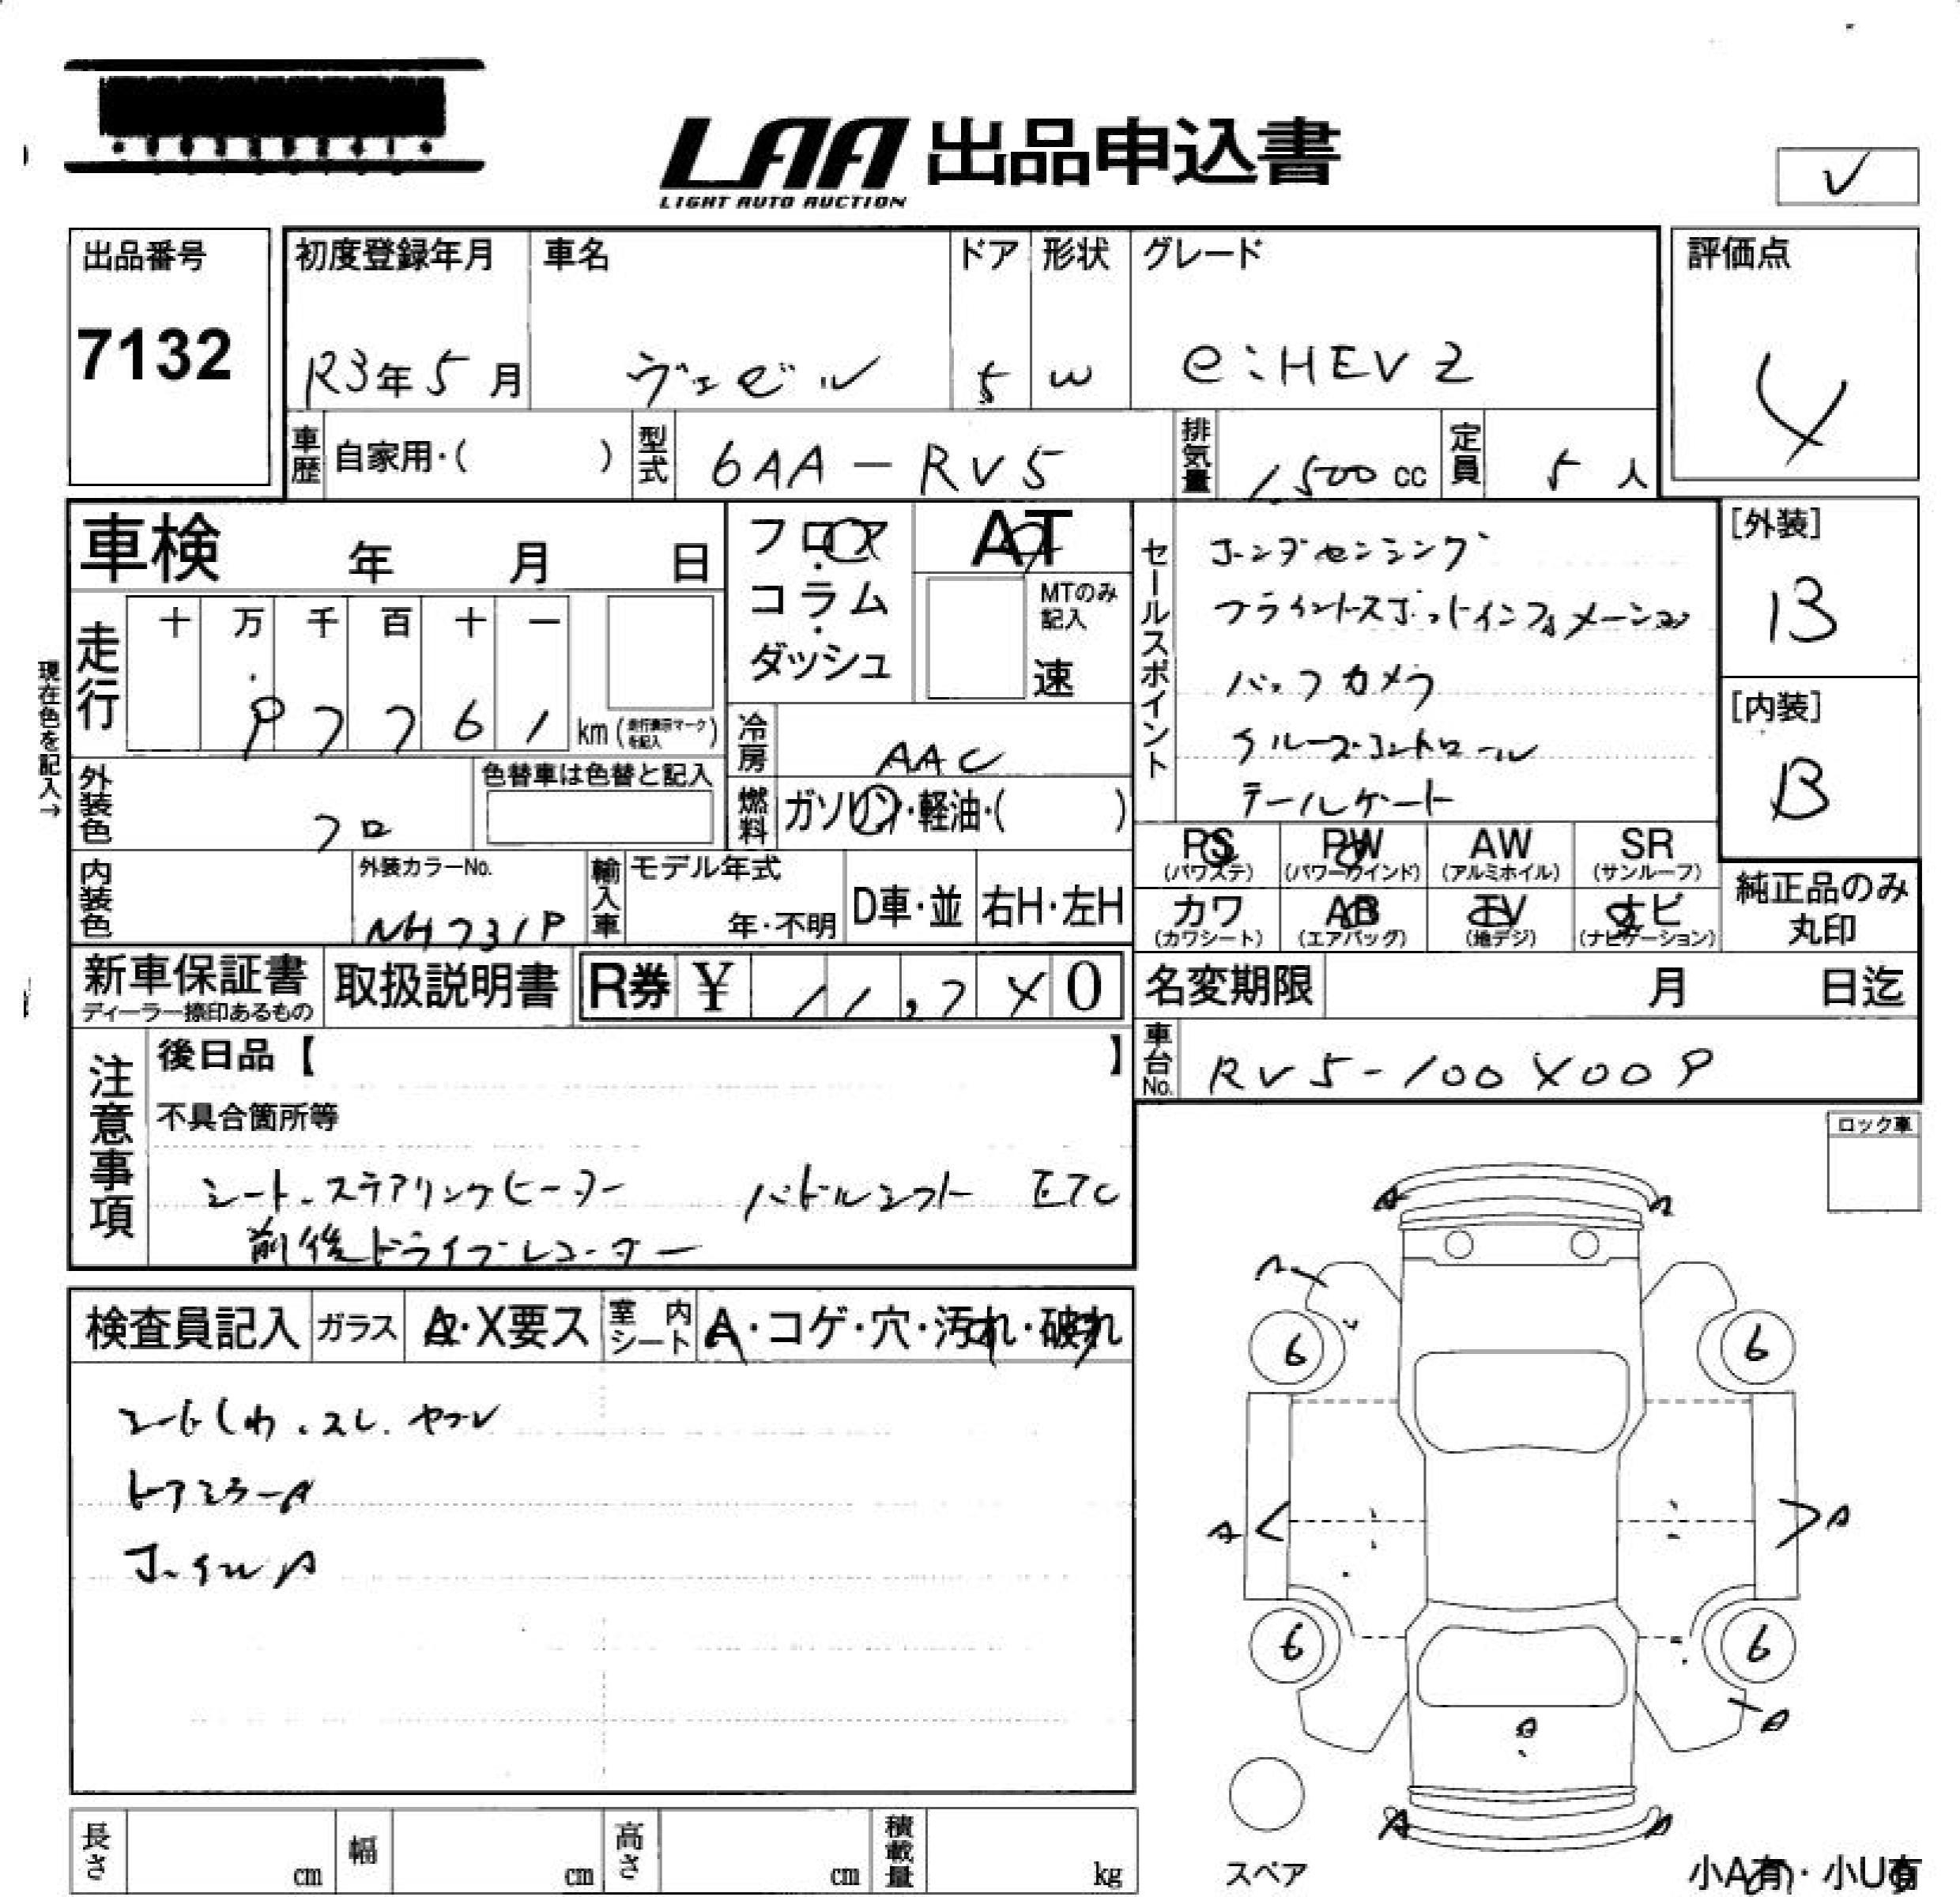 LAA 出品申込書
LIGHT AUTO AUCTION
出品番号
7132
初度登録年月 車名 ドア 形状 グレード
R3年5月 ヴェゼル 5 W e:HEV Z
評価点
4
車歴 自家用・( ) 型式 6AA-RV5 排気量 1500cc 定員 5人
車検 年 月 日
フロア・コラム・ダッシュ
AT
MTのみ記入
速
セールスポイント
ホンダセンシング
ブラインドスポットインフォメーション
バックカメラ
クルーズコントロール
テールゲート
[外装]
B
[内装]
B
現在色を記入→
走行 十 万 千 百 十 一
97761 km (走行表示マークを記入)
冷房 AAC
外装色 クロ
色替車は色替と記入
燃料 ガソリン・軽油・( )
PS (パワステ) PW (パワーウインド) AW (アルミホイル) SR (サンルーフ)
カワ (カワシート) AB (エアバッグ) TV (地デジ) ナビ (ナビゲーション)
純正品のみ丸印
内装色 外装カラーNo. NH731P
輸入車 モデル年式 年・不明 D車・並 右H・左H
新車保証書 ディーラー捺印あるもの
取扱説明書 R券 ¥ 11,740
名変期限 月 日迄
車台No. RV5-1004009
注意事項
後日品【 】
不具合箇所等
シート、ステアリングヒーター パドルシフト ETC
前後ドライブレコーダー
ロック車
検査員記入 ガラス A・X要ス 室内シート A・コゲ・穴・汚れ・破れ
シートしわ、スレ、ヤブレ
ドアミラーA
ホイルA
A A
A
6 6
A A
6 6
A
A
A A
スペア
小A有・小U有
長さ cm 幅 cm 高さ cm 積載量 kg